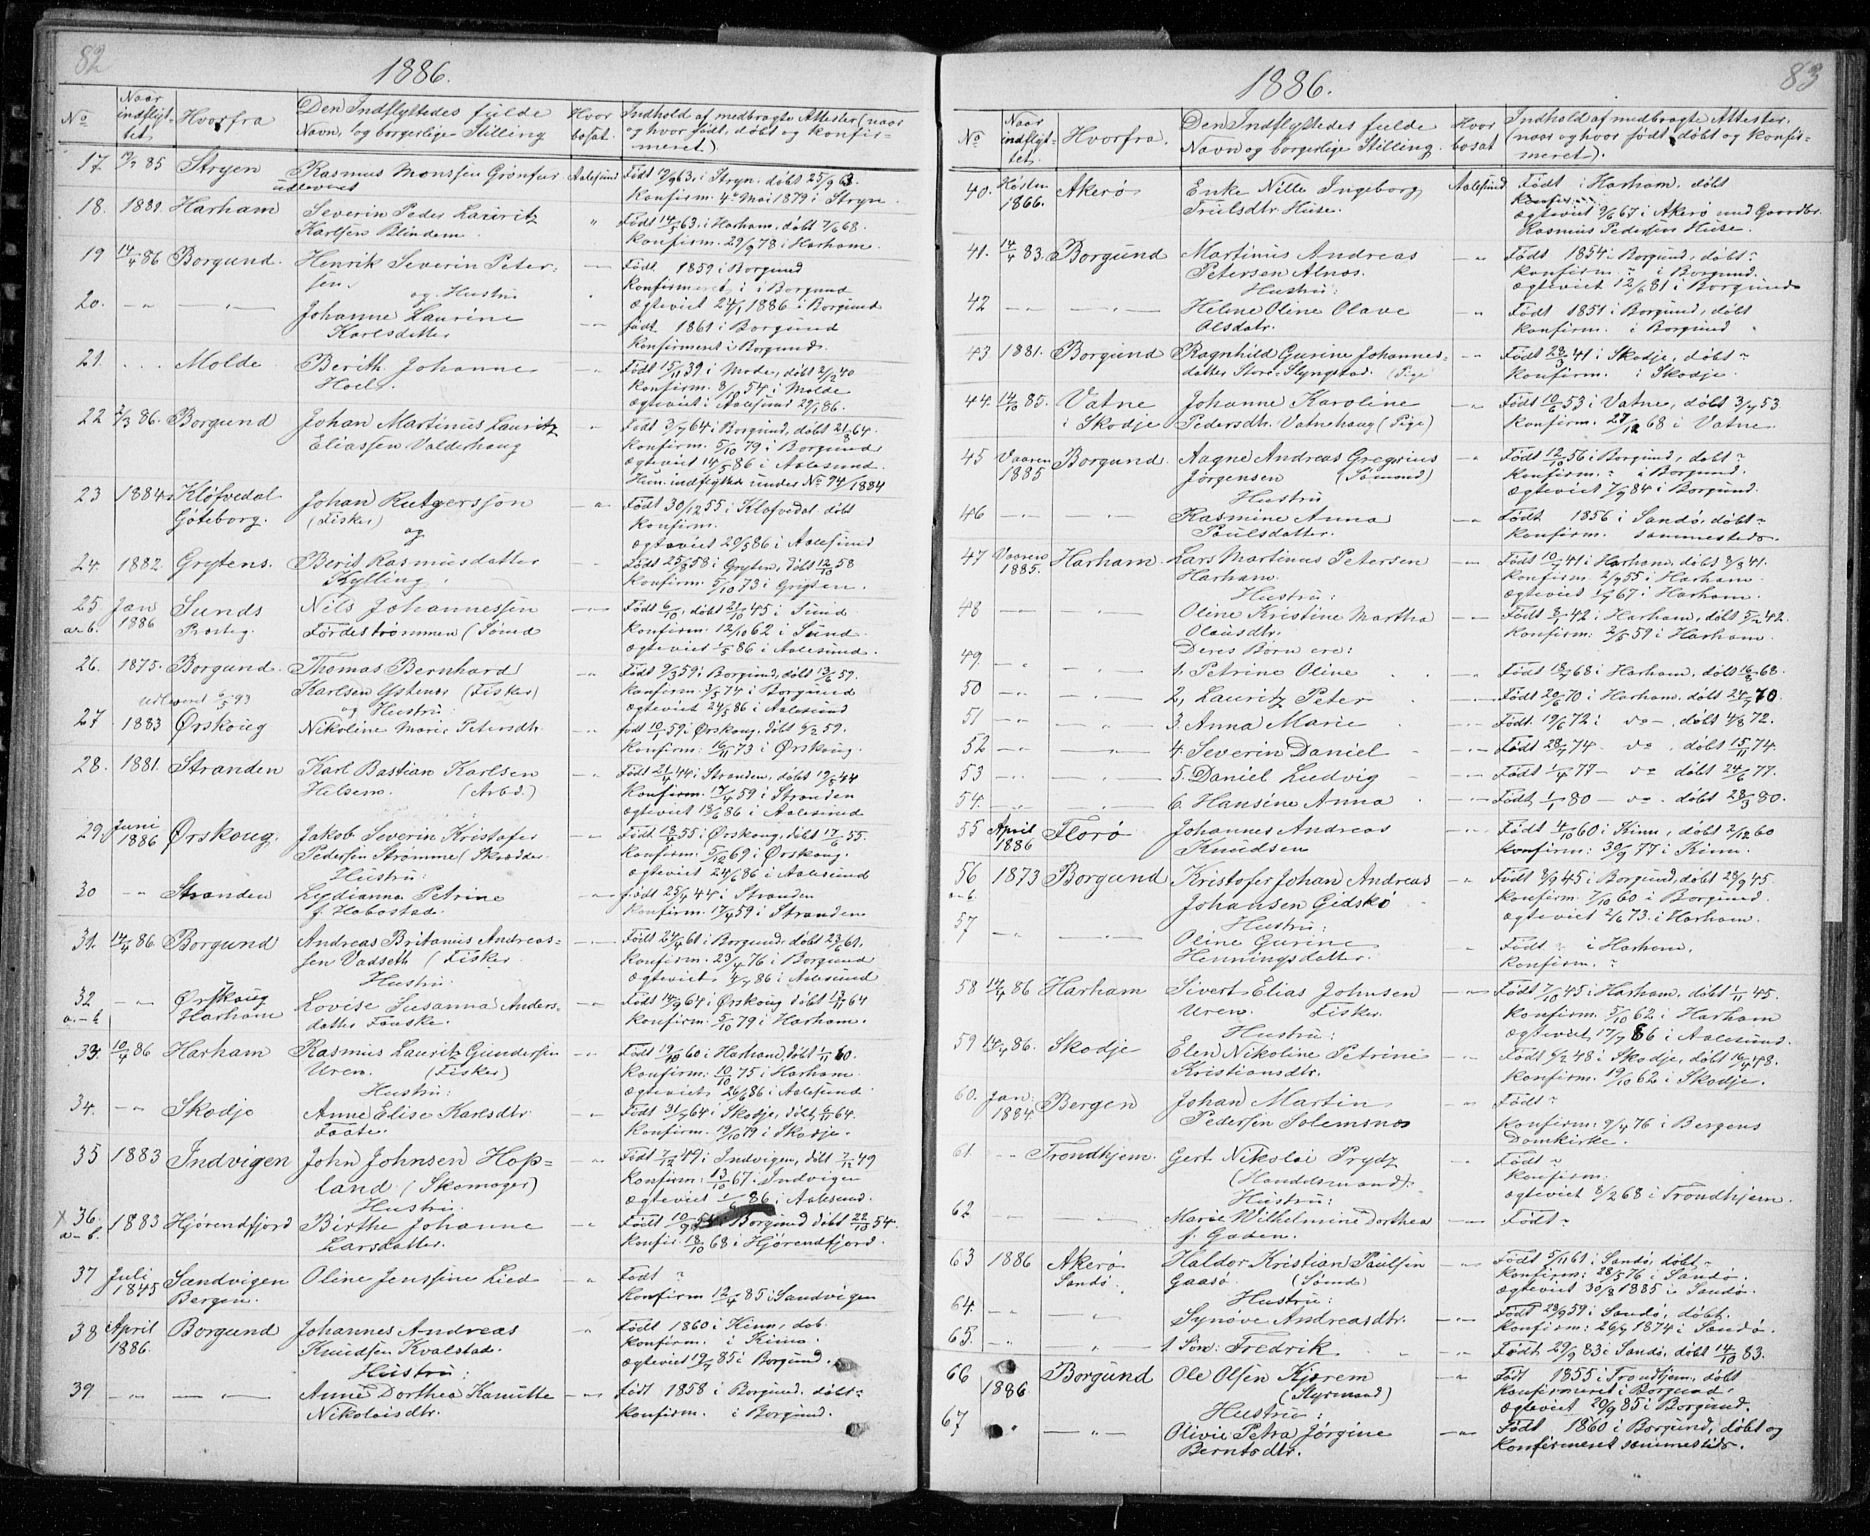 82
1886.
No
Naar indflyttet.
Hvorfra
Den Indflyttedes fulde Navn, og borgerlige Stilling
Hvor bosat.
Indhold af medbragte Attester (naar og hvor født, døbt og konfirmeret).
17 85 Stryen Rasmus Monssen Grønfur Aalesund Født 19/9 63 i Stryn, døbt 25/9 63.
udleveret Konfirm. 4de Mai 1879 i Stryn.
18. 1881. Harham Severin Peder Lauritz " Født 14/5 63 i Harham, døbt 7/6 68.
Karlsen Blindem. Konfirm. 29/9 78 i Harham.
19 14/4 86 Borgund. Henrik Severin Peter- Født 1859 i Borgund
sen. og Hustru Konfirmeret i Borgund
20. -"- -"- Johanne Laurine Ægteviet 24/1 1886 i Borgund
Karlsdatter født 1861 i Borgund
Konfirmeret i Borgund.
21. Molde Berith Johanne Født 15/11 39 i Molde, døbt 2/2 40
Hoel. Konfirm. 8/10 54 i Molde
Ægteviet i Aalesund 29/1 86.
22 2/3 86. Borgund Johan Martinus Lauritz Født 3/7 64 i Borgund, døbt 21/8 64.
Eliassen Valderhaug Konfirm. 5/10 79 i Borgund
Ægteviet 14/5 86 i Aalesund.
Hun indflyttede under No 94/1884
23 1884 Kløfvedal Johan Rutgersson Født 30/12 55 i Kløfvedal døbt
Göteborg. (Fisker) og Konfirm.
Ægteviet 29/5 86 i Aalesund
24. 1882 Grytens. Berit Rasmusdatter Født 25/8 58 i Gryten, døbt 12/10 58
Kylling. Konfirm. 5/10 73 i Gryten
25 Jan Sunds Nils Johannessen Født 6/10, døbt 21/10 45 i Sund
a-b. 1886 Præsteg. Førdestrømmen (Sømd Konfirm. 12/10 62 i Sund.
Ægteviet 1/5 86 i Aalesund.
26. 1875. Borgund. Thomas Bernhard Født 9/3 59 i Borgund, døbt 13/6 59.
Udleveret 6/5 93 Karlsen Ystenes (Fisker) Konfirm. 3/5 74 i Borgund
og Hustru: Ægteviet 24/5 86 i Aalesund
27 1883 Ørskoug Nikoline Marie Petersdtr. født 10/1 59 i Ørskoug, døbt 6/2 59.
Konfirm. 16/11 73 i Ørskoug.
28. 1881. Stranden Karl Bastian Karlsen Født 21/4 44 i Stranden, døbt 19/5 44
Helsem. (Arbd.) Konfirm. 17/4 59 i Stranden
Ægteviet 13/6 86 i Aalesund
29. Juni 1886 Ørskoug. Jakob Severin Kristofer Født 18/4 55 i Ørskoug, døbt 17/6 55.
Pedersen Strømme (Skrædder Konfirm. 5/12 69 i Ørskoug.
Hustru: Ægteviet 24/6 86 i Aalesund
30 -"- Stranden Lydianna Petrine født 25/4 44 i Stranden
f. Habostad. Konfirm. 17/4 59 i Stranden
31. 14/4 86 Borgund Andreas Britanus Andreas- Født 24/4 61 i Borgund, døbt 23/6 61.
sen Vadseth (Fisker Konfirm. 23/4 76 i Borgund
Hustru Ægteviet 4/7 86 i Aalesund
32 -"- Ørskoug Lovise Susanna Anders- Født 14/9 64 i Ørskoug døbt 13/11 64
a-b Harham datter Fauske. Konfirm. 5/10 79 i Harham.
33. 10/4 86 Harham Rasmus Lauritz Gundersen Født 19/10 60 i Harham, døbt 1/11 60.
Urem. (Fisker) Konfirm: 10/10 75 i Harham.
Hustru: Ægteviet 26/6 86 i Aalesund
34. -"- Skodje Anne Elise Karlsdtr. Født 31/7 64 i Skodje, døbt 64.
Faate. Konfirm. 19/10 79 i Skodje.
35 1883 Indvigen John Johnsen Hop- Født 7/12 49 i Indvigen, døbt 9/12 49
land (Skomager) Konfirm: 13/10 67. Indvigen
Hustru. Ægteviet 86 i Aalesund.
x 36. 1883 Hjørendfjord Birthe Johanne Født 10/9 54 i Borgund døbt 22/10 54.
a-b. Larsdatter. Konfir. 18/10 68 i Hjørendfjord.
37 Juli 1845 Sandvigen Oline Jenssine Lied Født "
Bergen. Konfirm 12/4 85 i Sandvigen
38 April 1886. Borgund Johannes Andreas Født 1860 i Kinn, døb.
Knudsen Kvalstad. Konfirm. i Kinn.
Hustru: Ægteviet 19/7 85 i Borgund.
39 -"- -"- Anne Dorthea Hanutte Født 1858 i Borgund. døbt
Nikolaisdtr. Konfirm. i Borgund.
83
1886.
No
Naar indflyttet.
Hvorfra.
Den Indflyttedes fulde Navn og borgerlige Stilling.
Hvor bosat
Indhold af medbragte Attester. (naar og hvor født, døbt og konfirmeret).
40. Høsten 1866. Akerø Enke Nille Ingeborg Aalesund Født i Harham, døbt
Trulsdtr. Huse. Konfir
Ægteviet 9/6 67 i Akerø med Gaardbr.
Rasmus Pedersen Huse.
41. 14/4 83. Borgund Martinus Andreas -"- Født 1854 i Borgund, døbt
Petersen Alnæs. Konfirm. " i Borgund.
Hustru: Ægteviet 12/6 81 i Borgund
42 -"- -"- Helene Oline Olave Født 1851 i Borgund, døbt
Olsdatr. Konfirm. i Borgund
43 1881. Borgund Ragnhild Gurine Johannes- Født 28/3 41 i Skodje, døbt "
datter Store-Slyngstad. (Pige Konfirm. i Skodje.
44. 14/10 85. Vatne Johanne Karoline Født 10/6 53 i Vatne, døbt 3/7 53
i Skodje Pedersdtr. Vatnehaug (Pige) Konfirm. 27/12 68 i Vatne
45 Vaaren 1885 Borgund. Aagne Andreas Gregorius Født 12/10 56 i Borgund, døbt "
Jørgensen (Sømand) Konfirm. " i Borgund.
Hustru Ægteviet 7/9 84 i Borgund.
46 -"- -"- Rasmine Anna Født 1856 i Sandø, døbt "
Poulsdatter. Konfirm. sammesteds.
47 Vaaren 1885. Harham Lars Martinus Petersen Født 10/7 41 i Harham, døbt 8/8 41.
Harham. Konfirm 2/9 55 i Harham.
Hustru: Ægteviet 1/7 67 i Harham.
48 -"- -"- Oline Kristine Martha Født 8/1 42 i Harham, døbt 5/2 42.
Olausdtr. Konfirm: 2/6 59 i Harham.
Deres Børn ere:
49. 1. Petrine Oline Født 18/7 68 i Harham, døbt 16/8 68.
50 2, Lauritz Peter Født 20/6 70 i Harham, døbt 24/7 70.
51 3. Anna Marie Født 19/6 72 i do, døbt 4/8 72.
52 4. Severin Daniel Født 28/7 74 do. døbt 15/11 74.
53 5. Daniel Ludvig Født 1/4 77 - do døbt 24/6 77.
54. 6. Hansine Anna Født, 1/1 80 - do. døbt 28/3 80.
55 April 1886 Florø Johannes Andreas Født 4/10 60 i Kinn, døbt 2/12 60
Knudsen Konfirm: 30/9 77 i Kinn.
56 1873 Borgund Kristofer Johan Andreas Født 8/9 45 i Borgund, døbt 28/9 45.
a-b. Johansen Gidskø Konfirm. 7/10 60 i Borgund.
Hustru: Ægteviet 2/6 73. i Harham.
57 -"- Oline Gurine Født " i Harham.
Henningsdatter. Konfirm. "
58 14/4 86 Harham Sivert Elias Johnsen Født 7/10 45 i Harham, døbt 1/11 45.
Urem. Fisker. Konfirm. 5/10 62 i Harham
Hustru: Ægteviet, 17/7 86 i Aalesund.
59 14/4 86. Skodje Elen Nikoline Petrine Født 6/2 48 i Skodje, døbt 16/4 48.
Kristiansdtr. Konfirm. 19/10 62 i Skodje.
60. Jan. 1884 Bergen Johan Martin Født "
Pedersen Solemsnes Konfirm: 9/4 76 i Bergens
Domkirke.
61 -"- Trondhjem. Gert Nikolai Prydz Født "
(Handelsmand). Konfirm.
Hustru: Ægteviet 8/2 68 i Trondhjem.
62 Marie Wilhelmine Dorthea Født "
f. Gaden.
63 1886 Akerø Haldor Kristian Paulsen Født 5/11 61 i Sandø, døbt
Sandø. Gaasø (Sømd) Konfirm: 28/5 76 i Sandø.
Hustru: Ægteviet 30/8 1885 i Sandø.
64. Synøve Andreasdtr. Født 23/9 59 i Sandø, døbt.
Konfirm: 26/7 1874 i Sandø.
65. 1 Søn: Fredrik Født 29/9 83 i Sandø, døbt 14/10 83.
66 1886 Borgund Ole Olsen Kjørem Født 1855 i Trondhjem, døbt
(Styrmand) Konfirmeret i Borgund.
Hustru: Ægteviet 20/9 85 i Borgund.
67 -"- Olivie Petra Jørgine Født 1860 i Borgund, døbt og
Berntsdtr. Konfirmeret sammesteds.